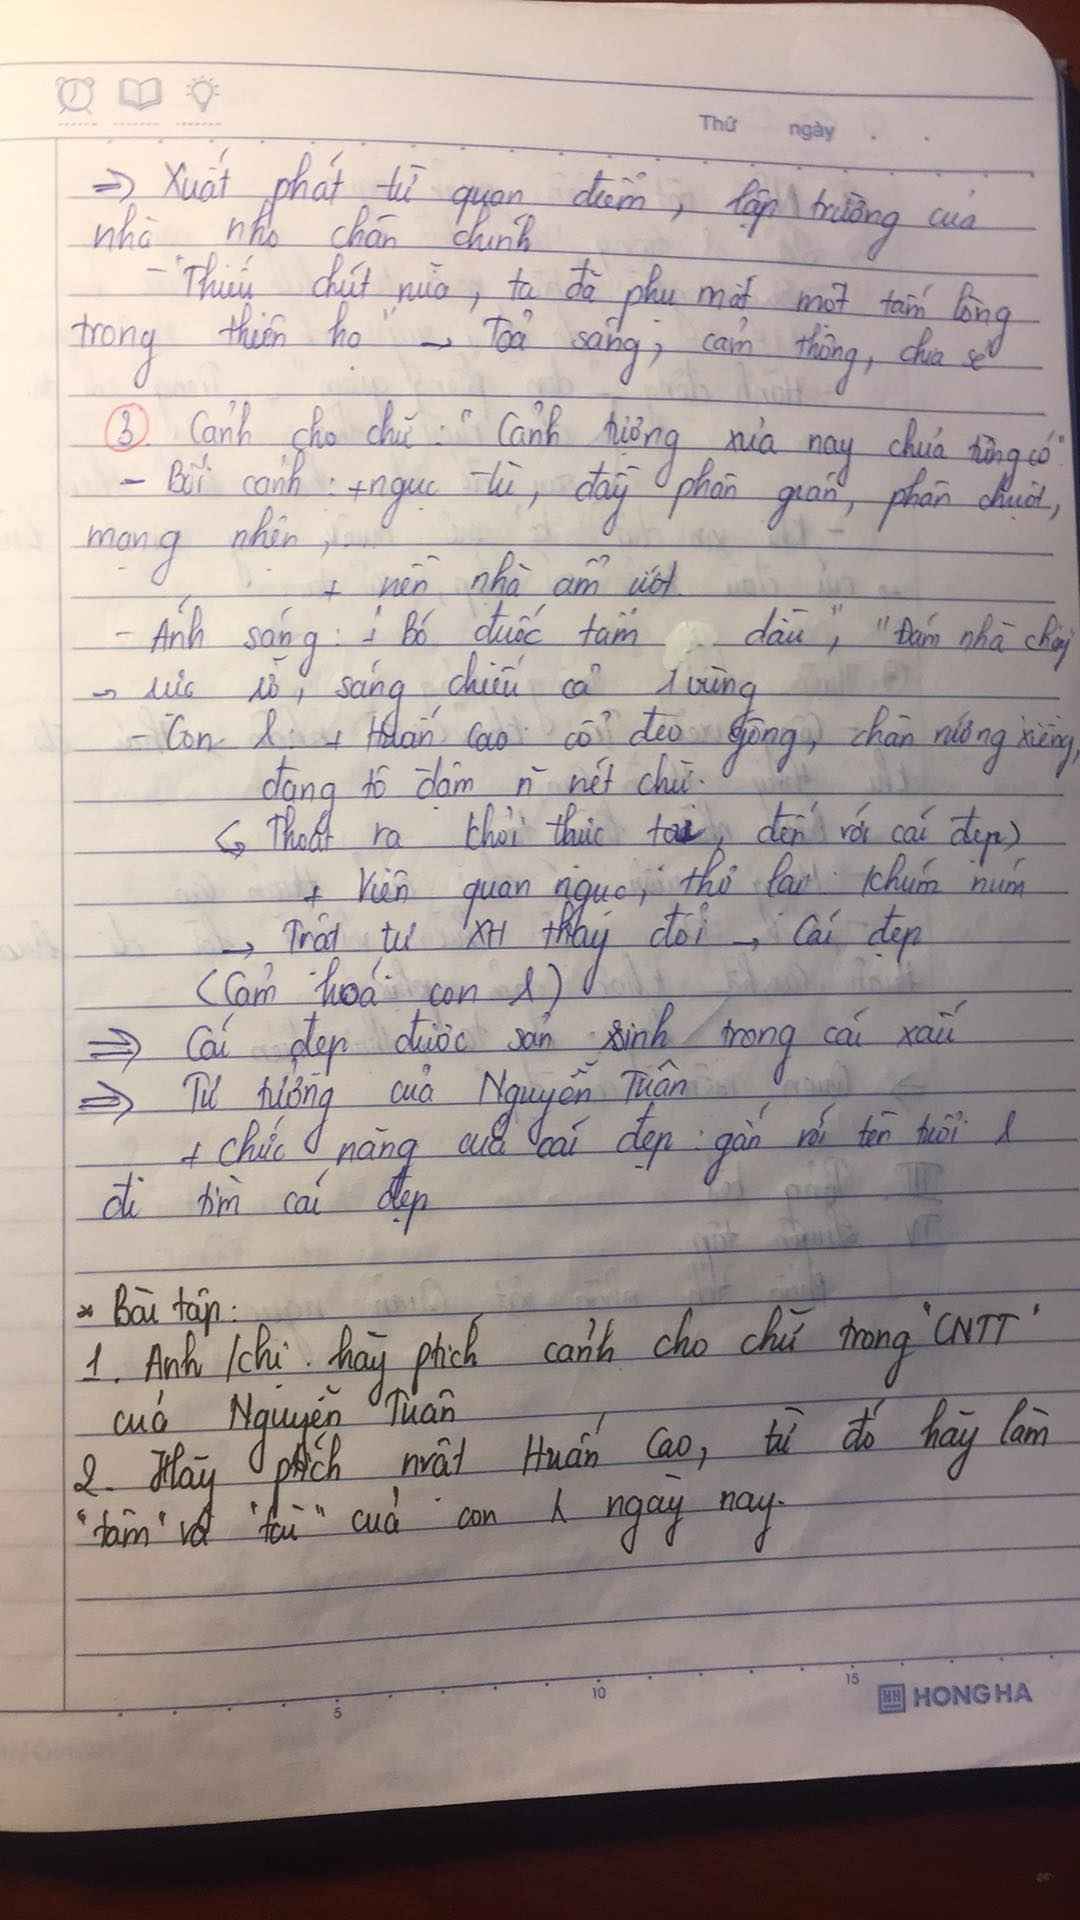 Thứ ngày . .
=> Xuất phát từ quan điểm, lập trường của
nhà nho chân chính
- "Thiếu chút nữa, ta đã phụ mất một tấm lòng
trong thiên hạ" → Toả sáng, cảm thông, chia sẻ
③ Cảnh cho chữ: "Cảnh tượng xưa nay chưa từng có"
- Bối cảnh: + ngục tù, đầy phân gián, phân chuột,
mạng nhện,
+ nền nhà ẩm ướt
- Ánh sáng: + Bó đuốc tẩm dầu", "Đám nhà cháy
→ rực rỡ, sáng chiếu cả 1 vùng
- Con λ: + Huấn Cao: cổ đeo gông, chân vướng xiềng,
đang tô đậm n~ nét chữ.
↳ Thoát ra khỏi thực tại, đến với cái đẹp)
+ Viên quan ngục, thơ lại: khúm núm
→ Trật tự XH thay đổi → Cái đẹp
(Cảm hoá con λ)
=> Cái đẹp được sản sinh trong cái xấu
=> Tư tưởng của Nguyễn Tuân
+ chức năng của cái đẹp: gắn với tên tuổi λ
đi tìm cái đẹp
* Bài tập:
1. Anh /chị hãy ptích cảnh cho chữ trong "CNTT"
của Nguyễn Tuân
2. Hãy ptích nvật Huấn Cao, từ đó hãy làm
"tâm" và "tài" của con λ ngày nay.
5 10 15
HH HONG HA